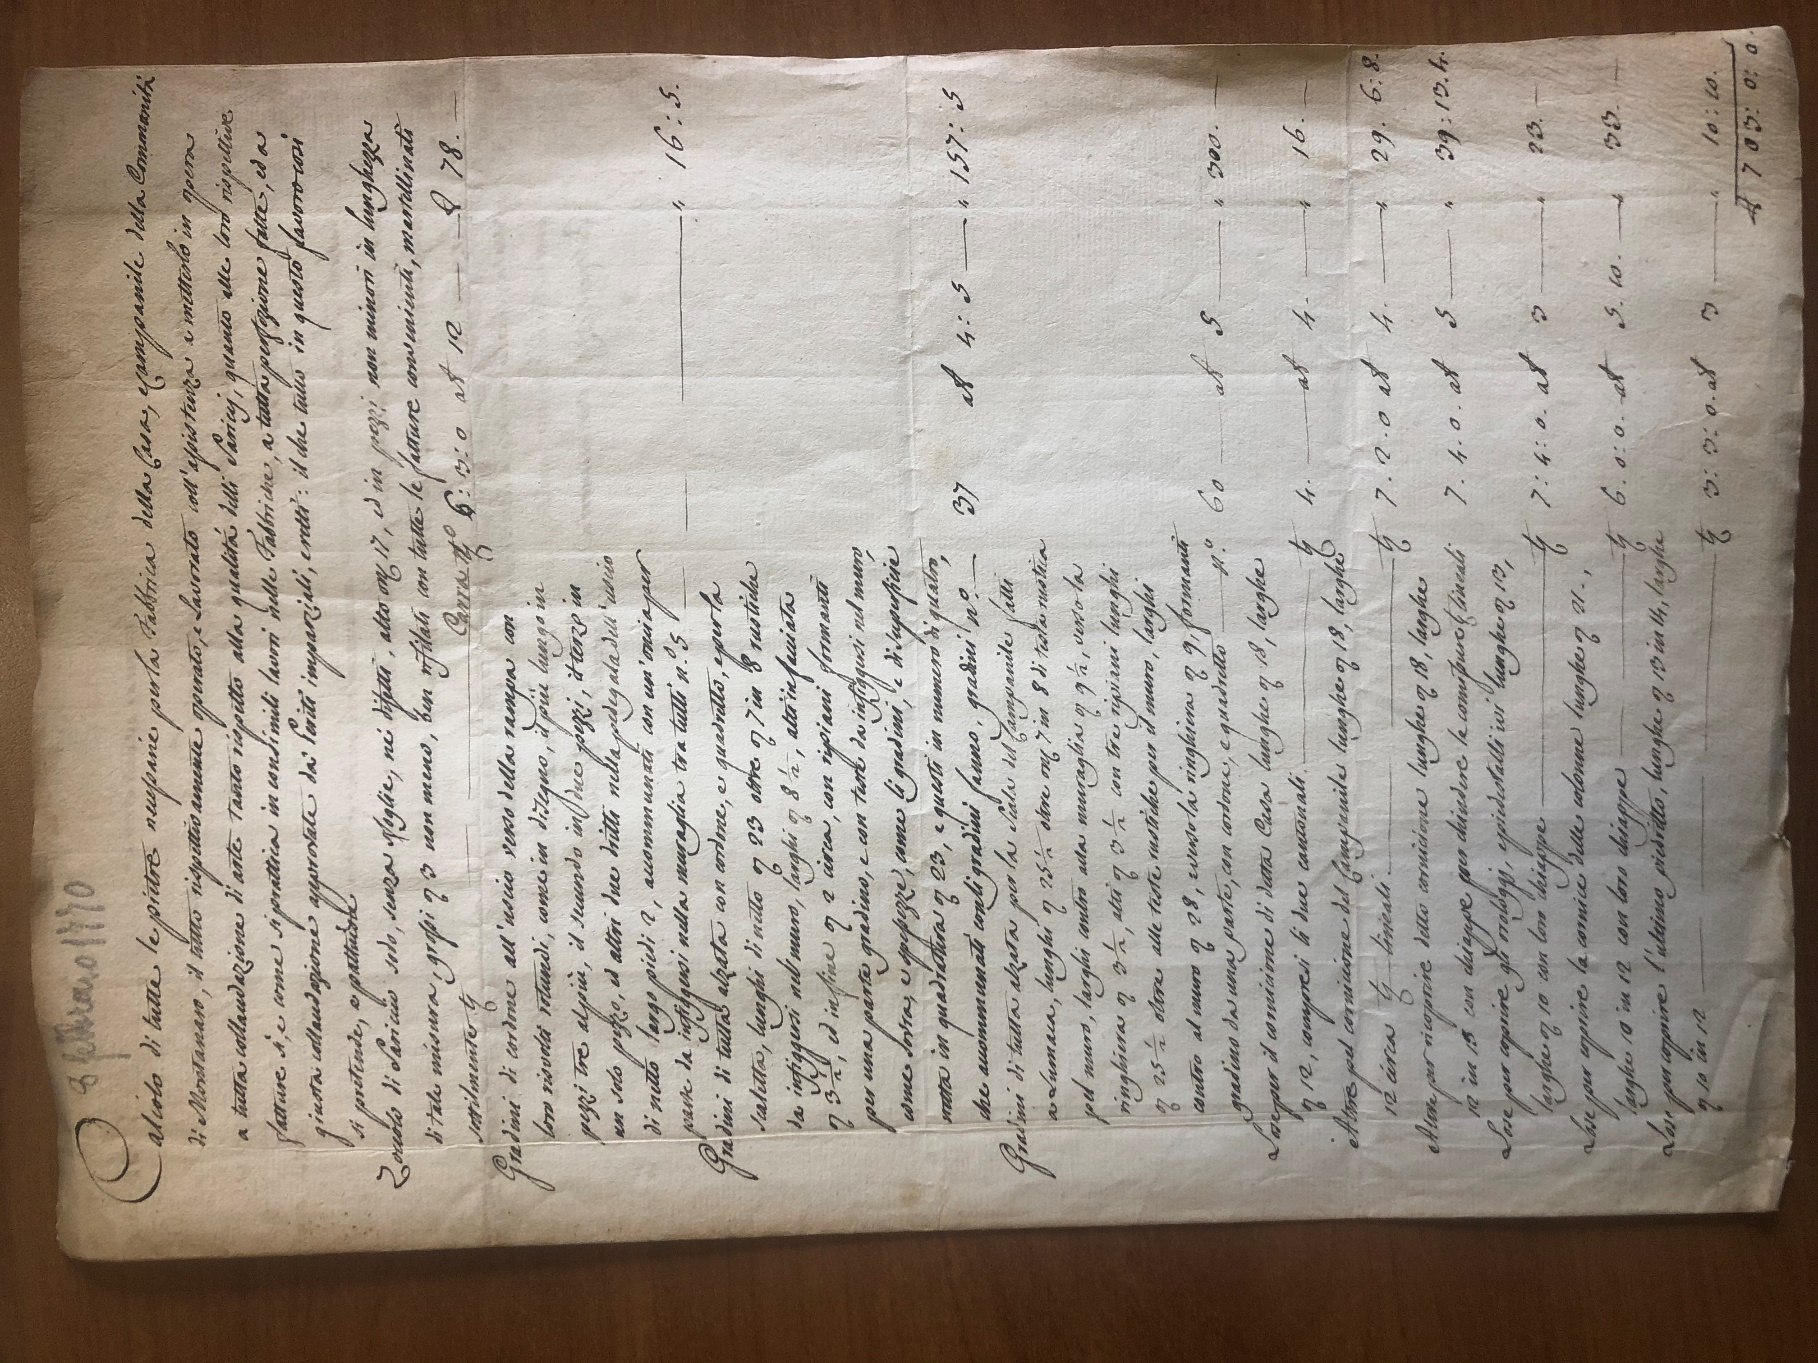 8 febbraro 1770
Calcolo di tutte le pietre necessarie per la Fabbrica della Casa, e Campanile della Communità
di Montanaro, il tutto rispettivamente operato, e lavorato coll'assistenza a metterlo in opera
a tutta collaudazione di arte tanto rispetto alla qualità delli Sarizj, quanto alle loro rispettive
fatture si, e come si prattica in consimili lavori nelle Fabbriche, a tutta perfezione fatte, ed a
giusta collaudazione approvate da' Periti imparziali, e retti: il che tutto in questo lavoro così
si pretende, e pattuisce
Zoccolo di Sarizzo sodo, senza sfoglie, nè difetti, alto on 17, ed in pezzi non minori in lunghezza
di tale misura, grossi on 3 non meno, ben rifilati con tutte le fatture convenienti, martellinati
sottilmente tb ——— Corre tb.o 6: 3: 0 at 12 — £ 78. —
Gradini di cordone all'uscio verso della rampa con
loro risvolti rotondi, come in disegno, il più lungo in
pezzi tre al più, il secondo in due pezzi, il terzo in
un solo pezzo, ed altri due dritti nella piegata dell'uscio
di netto largo piedi 2, accommunati con un'oncia per
parte da infiggersi nella muraglia tra tutti n.o 5 ——— " 16: 5.
Gradini di tutta alzata con cordone, e quadretto, e per la
saletta, lunghi di netto on 23 oltre on 7 in 8 rustiche
da infiggersi nel muro, larghi on 8 ½, alti in facciata
on 3 ½, ed infine on 2 circa, con ripiani formanti
per una parte gradino, e con teste da infiggersi nel muro,
come sovra, e grossezze, come li gradini, e di superficie
netta in quadratura on 23, e questi in numero di quatro,
che accommunati con li gradini fanno, gradini n.o — 37 at 4: 5 — " 157: 5
Gradini di tutta alzata per la Scala del Campanile fatti
a Lumaca, lunghi on 25 ½ oltre on 7 in 8 di testa rustica
pel muro, larghi contro alla muraglia on 9 ½, verso la
ringhiera on 3 ½, alti on 3 ½ con tre ripiani lunghi
on 25 ½ oltre alle teste rustiche per il muro, larghi
contro al muro on 28, verso la ringhiera on 9, formanti
gradino da una parte, con cordone, e quadretto — n.o 60 — at 5 — " 300. —
Lose per il cornicione di detta Casa lunghe on 18, larghe
on 12, compresi li due cantonali. ——— tb 4. — at 4. — " 16. —
Altre pel cornicione del Campanile lunghe on 18, larghe
12 circa tb lineali ——— tb 7. 2. 0 at 4. — " 29. 6: 8.
Altre per ricoprire detto cornicione lunghe on 18, larghe
12 in 13 con chiappe per chiudere le comissure lineali 7. 4. 0. at 5 — " 39: 13. 4.
Lose per coprire gli orologgj, e piedestalli ivi lunghe on 13,
larghe on 10 con loro chiappe ——— tb 7: 4: 0. at 3 — " 23. —
Lose per coprire la cornice delle colonne lunghe on 21.,
larghe 10 in 12 con loro chiappe ——— tb 6. 0: 0. at 5. 10. — " 33. —
Lose per coprire l'ultimo piedritto, lunghe on 13 in 14, larghe
on 10 in 12 ——— tb 3: 3: 0. at 3 — " 10: 10.
£ 703: 0: 0.